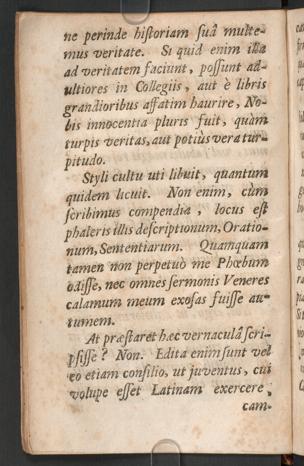 ne perinde hiſtoriam ſuâ multe-
mus veritate. Si quid enim illa
ad veritatem faciunt, poſſunt ad-
ultiores in Collegiis, aut è libris
grandioribus affatim haurire, No-
bis innocentia pluris fuit, quàm
turpis veritas, aut potiùs vera tur-
pitudo.
Styli cultu uti libuit, quantum
quidem licuit. Non enim, cùm
ſcribimus compendia, locus eſt
phaleris illis deſcriptionum, Oratio-
num, Sententiarum. Quamquam
tamen non perpetuò me Phœbum
odiſſe, nec omnes ſermonis Veneres
calamum meum exoſas fuiſſe au-
tumem.
At præſtaret hæc vernaculâ ſcri-
pſiſſe? Non. Edita enim ſunt vel
eo etiam conſilio, ut juventus, cui
volupe eſſet Latinam exercere,
cam-